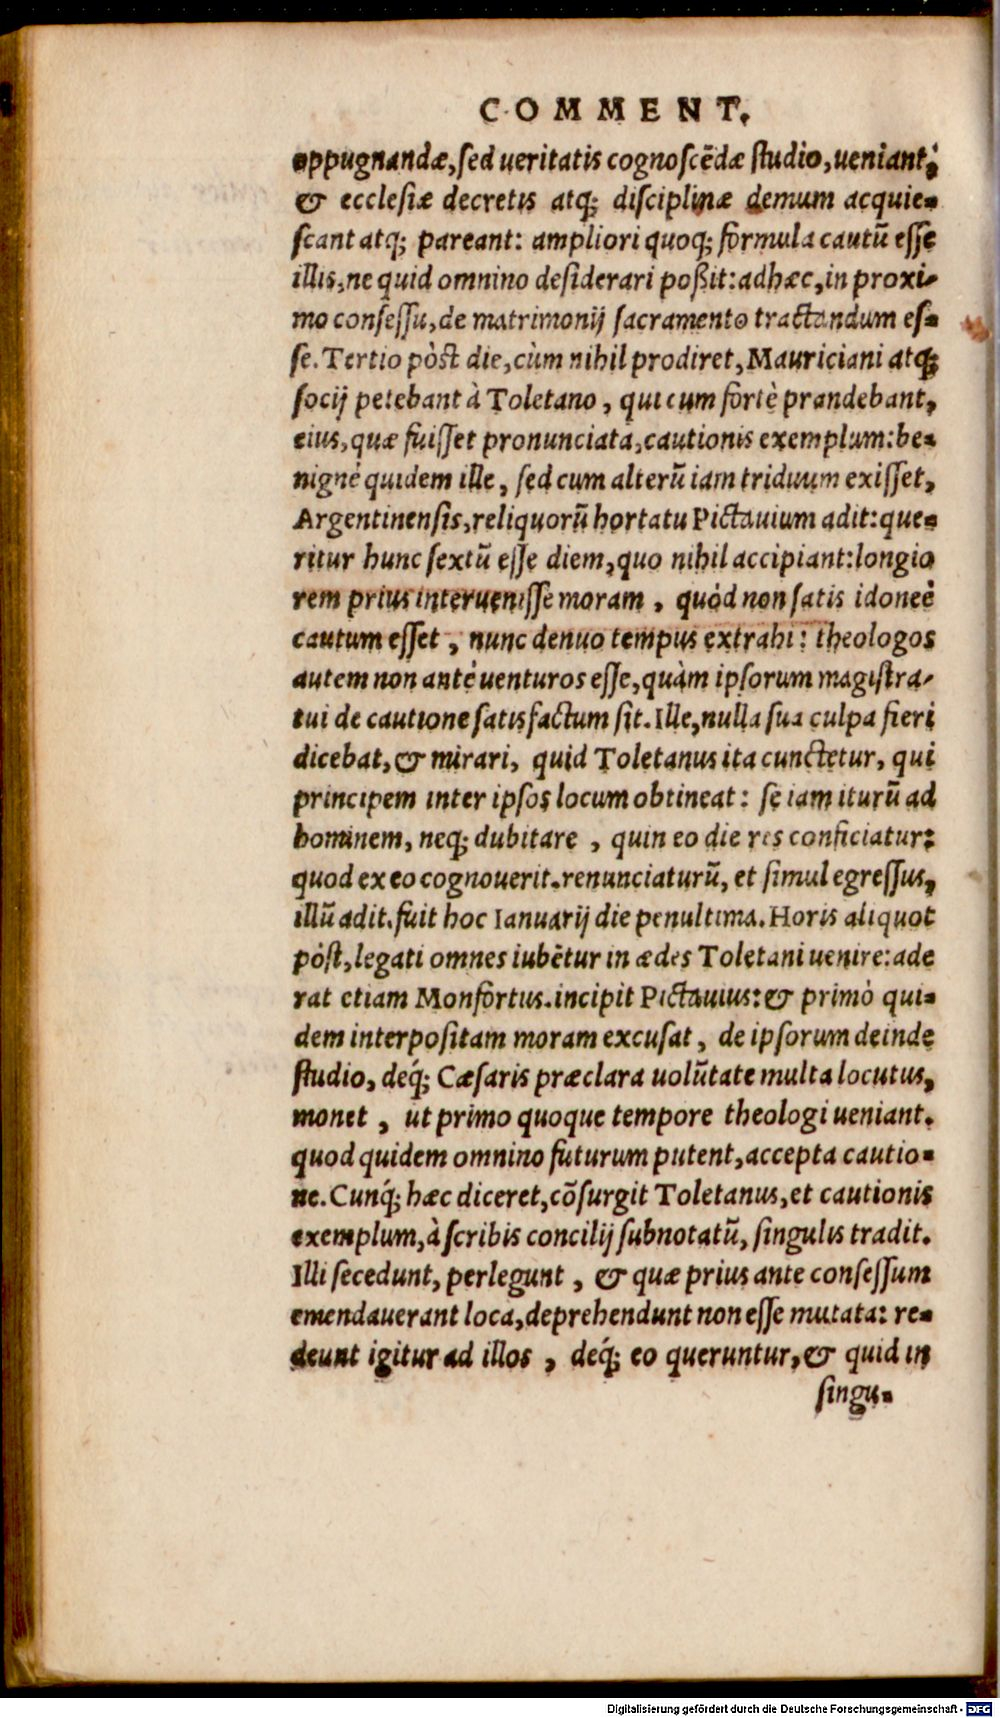 COMMENT.
oppugnandæ, sed ueritatis cognoscẽdæ studio, ueniant;
& ecclesiæ decretis atq; disciplinæ demum acquie-
scant atq; pareant: ampliori quoq; formula cautũ esse
illis, ne quid omnino desiderari poßit: adhæc, in proxi-
mo consessu, de matrimonij sacramento tractandum es-
se. Tertio pòst die, cùm nihil prodiret, Mauriciani atq;
socij petebant à Toletano, qui cum fortè prandebant,
eius, quæ fuisset pronunciata, cautionis exemplum: be-
nignè quidem ille, sed cum alterũ iam triduum exisset,
Argentinensis, reliquorũ hortatu Pictauium adit: que-
ritur hunc sextũ esse diem, quo nihil accipiant: longio
rem prius interuenisse moram, quòd non satis idoneè
cautum esset, nunc denuo tempus extrahi: theologos
autem non antè uenturos esse, quàm ipsorum magistra-
tui de cautione satisfactum sit. Ille, nulla sua culpa fieri
dicebat, & mirari, quid Toletanus ita cunctetur, qui
principem inter ipsos locum obtineat: se iam iturũ ad
hominem, neq; dubitare, quin eo die res conficiatur:
quod ex eo cognouerit. renunciaturũ, et simul egressus,
illũ adit. fuit hoc Ianuarij die penultima. Horis aliquot
pòst, legati omnes iubẽtur in ædes Toletani uenire: ade
rat etiam Monfortus. incipit Pictauius: & primò qui-
dem interpositam moram excusat, de ipsorum deinde
studio, deq́; Cæsaris præclara uolũtate multa locutus,
monet, ut primo quoque tempore theologi ueniant.
quod quidem omnino futurum putent, accepta cautio-
ne. Cunq́; hæc diceret, cõsurgit Toletanus, et cautionis
exemplum, à scribis concilij subnotatũ, singulis tradit.
Illi secedunt, perlegunt, & quæ prius ante consessum
emendauerant loca, deprehendunt non esse mutata: re-
deunt igitur ad illos, deq́; eo queruntur, & quid in
singu-
Digitalisierung gefördert durch die Deutsche Forschungsgemeinschaft - DFG